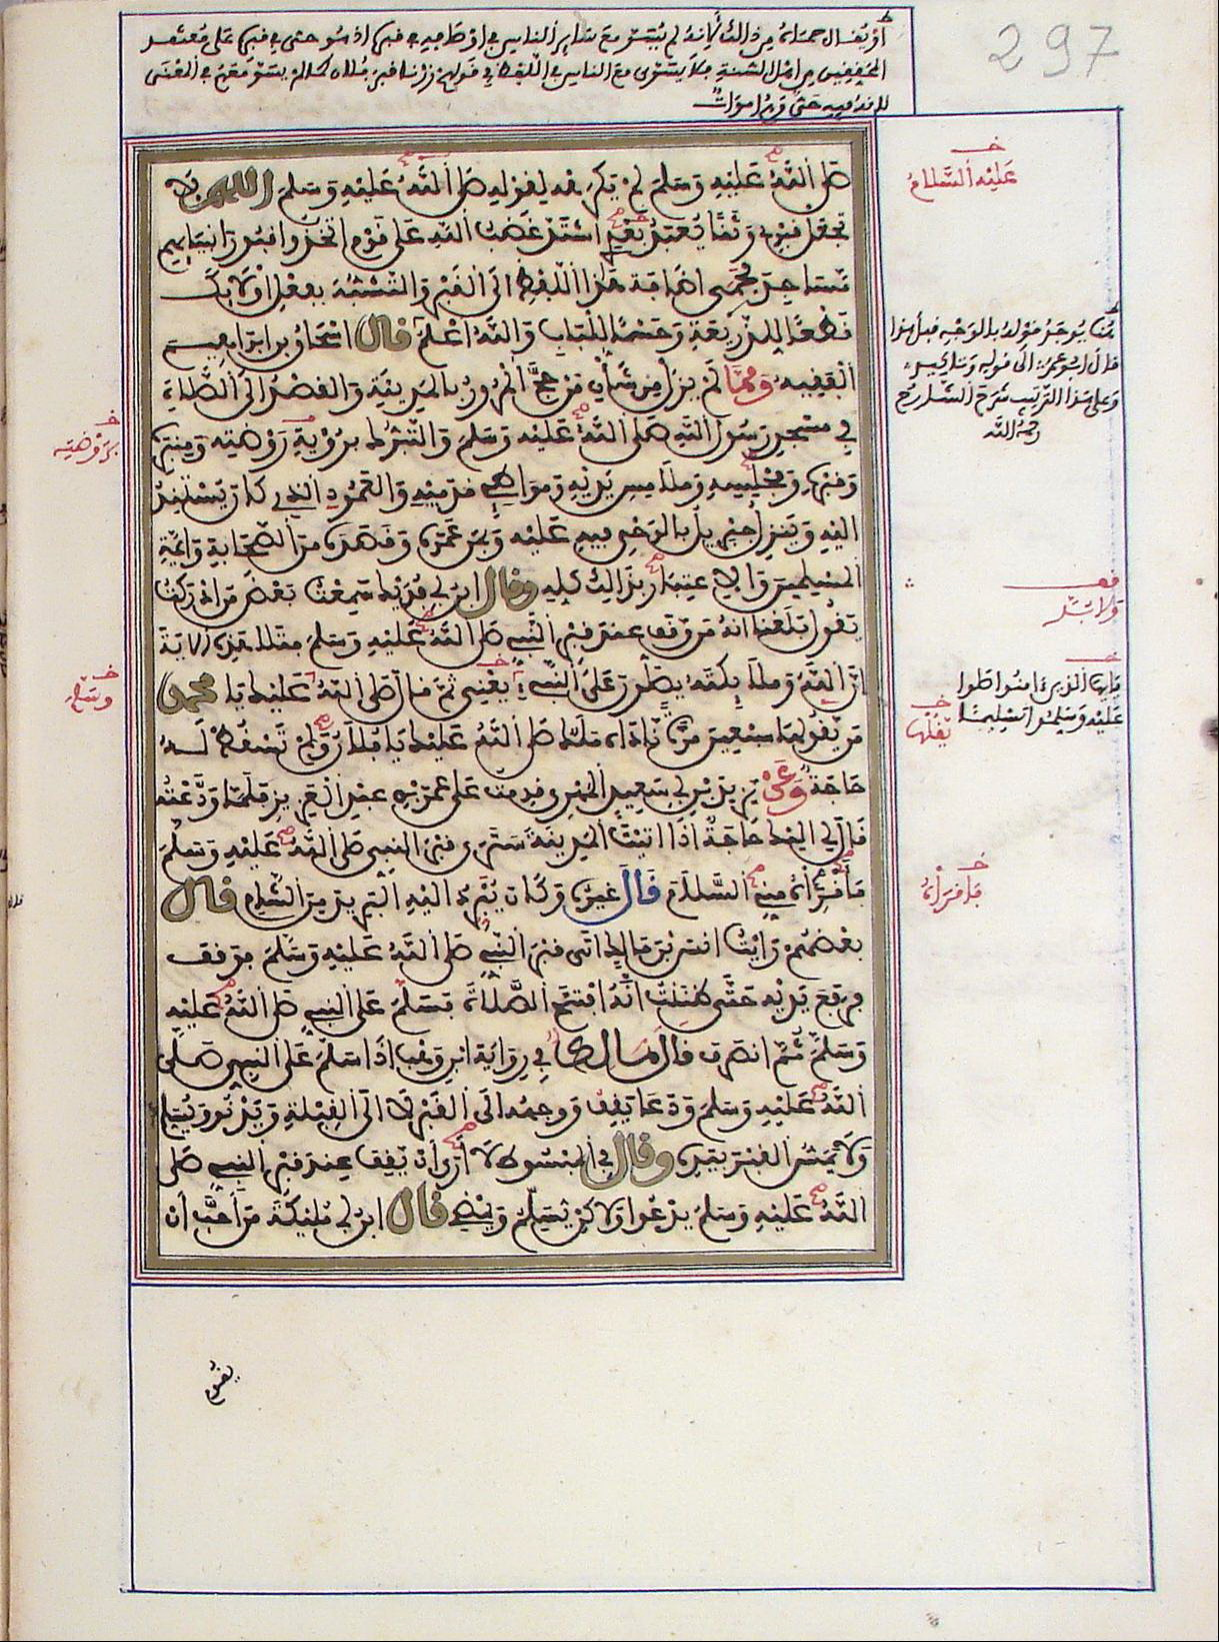 297
او يقال حمايته من ذالك لانه لم يستو مع سائر الناس في اوصافه في قبره اذ هو حي في قبره على معتقد
المحققين من اهل السنة فلا يستوى مع الناس في اللفظ في قولهم زرنا قبر فلان كما لم يستو معهم في المعنى
صلى الله عليه وسلم لم يكره لقوله صلى الله عليه وسلم اللهم لا
تجعل قبرى وثنا يعبد بعدى اشتد غضب الله على قوم اتخذوا قبور انبيايهم
مساجد فحمى اضافة هذا اللفظ الى القبر والتشبه بفعل اولائك
قطعا للذريعة وحسما للباب والله اعلم قال اسحاق بن ابراهيم
الفقيه ومما لم يزل من شأن من حج المرور بالمدينة والقصد الى الصلاة
في مسجد رسول الله صلى الله عليه وسلم والتبرك برؤية روضته ومنبره
وقبره ومجلسه وملامس يديه ومواطئ قدميه والعمود الذى كان يستند
اليه وينزل جبريل بالوحى فيه عليه وبمن عمره وقصده من الصحابة وائمة
المسلمين والاعتبار بذالك كله وقال ابن ابى فديك سمعت بعض من ادركت
يقول بلغنا انه من وقف عند قبر النبي صلى الله عليه وسلم فتلا هذه الاية
ان الله وملايكته يصلون على النبي يعنى ثم قال صلى الله عليك يا محمد
من يقولها سبعين مرة ناداه ملك صلى الله عليك يا فلان ولم تسقط له
حاجة وعن يزيد بن ابى سعيد المهرى قدمت على عمر بن عبد العزيز فلما ودعته
قال لى اليك حاجة اذا اتيت المدينة سترى قبر النبي صلى الله عليه وسلم
فاقرئه منى السلام قال غيره وكان يبرد اليه البريد من الشام قال
بعضهم رايت انس بن مالك اتى قبر النبي صلى الله عليه وسلم فوقف
فرفع يديه حتى ظننت انه افتتح الصلاة فسلم على النبي صلى الله عليه
وسلم ثم انصرف قال مالك في رواية ابن وهب اذا سلم على النبي صلى
الله عليه وسلم ودعا يقف ووجهه الى القبر لا الى القبلة ويدنو ويسلم
ولا يمس القبر بيده وقال في المبسوط لا ارى ان يقف عند قبر النبي صلى
الله عليه وسلم يدعوا ولاكن يسلم ويمضى قال ابن ابى مليكة من احب ان
عليه السلام
هنا يوجد قوله بالوجه قبل هذا
قال ابو عمران الى قوله
وعلى هذا الترتيب شرح الشارح
رحمه الله
بروضته
يايها الذين ءامنوا صلوا
عليه وسلموا تسليما
يقلها
وسلم
فاقرأه
يقوم